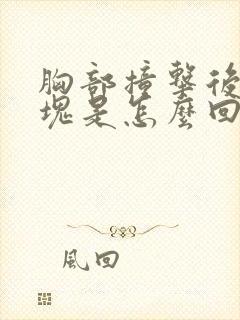 胸部撞擊後
塊是怎麼回
風回